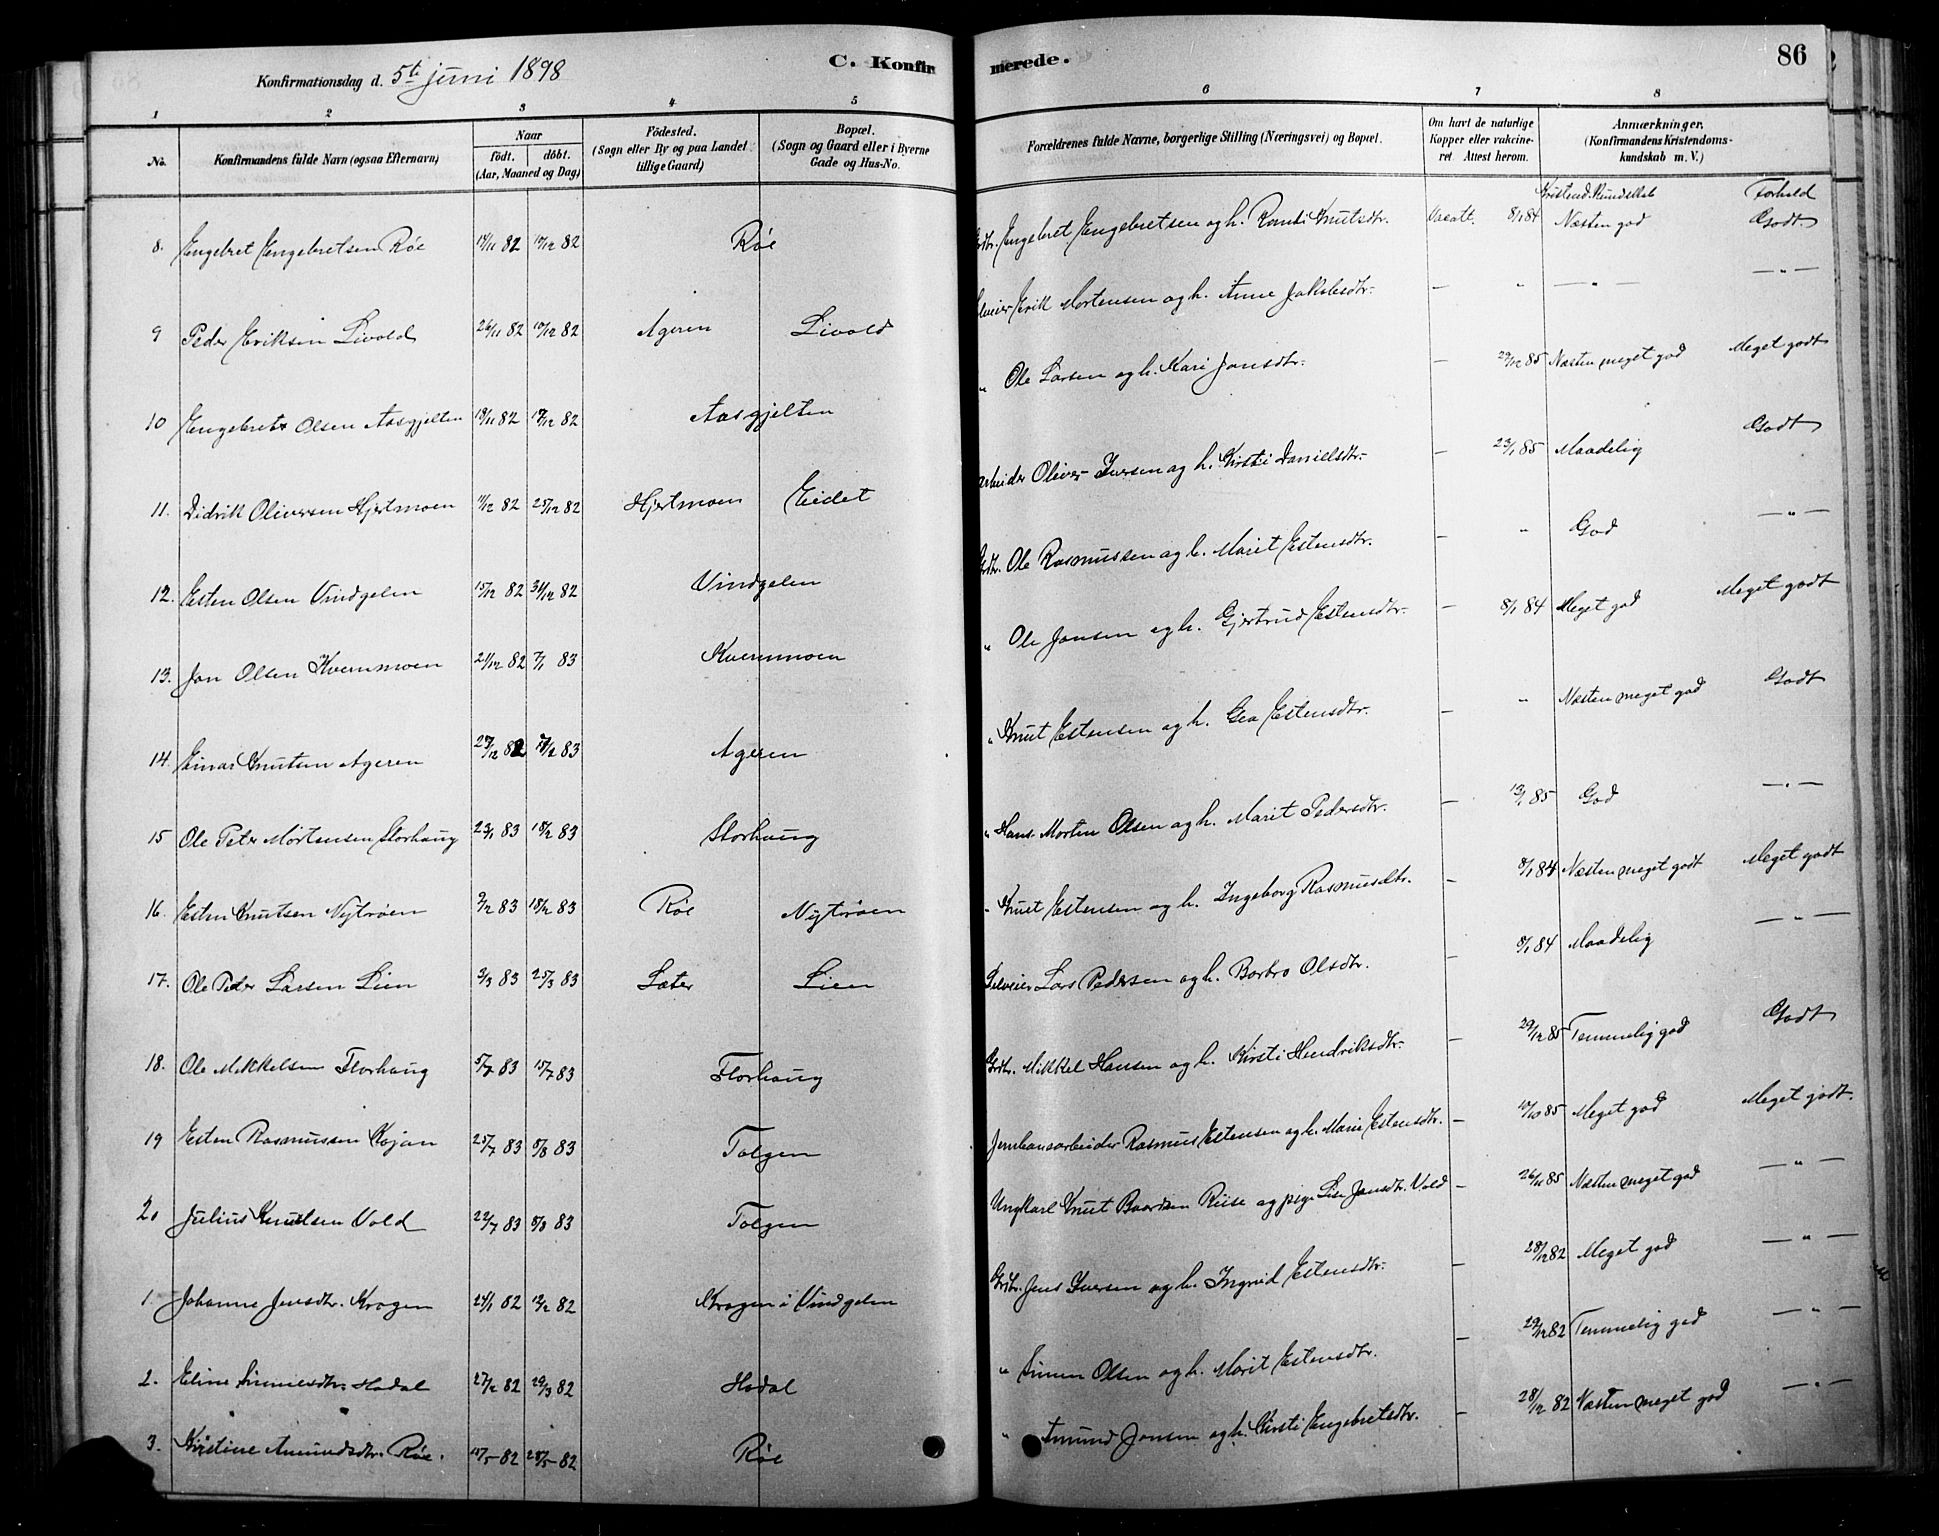 Konfirmationsdag d. 5te juni 1898 C. Konfirmerede. 86
1 2 3 4 5 6 7 8
No. Konfirmandens fulde Navn (ogsaa Efternavn) Naar født. døbt. (Aar, Maaned og Dag) Fødested. (Sogn eller By og paa Landet tillige Gaard) Bopæl. (Sogn og Gaard eller i Byerne Gade og Hus-No. Forældrenes fulde Navne, borgerlige Stilling (Næringsvei) og Bopæl. Om havt de naturlige Kopper eller vakcineret. Attest herom. Anmærkninger. (Konfirmandens Kristendomskundskab m. V.)
Kristend. Kundskab Forhold
8. Engebret Engebretsen Røe 82 82 Røe Engebret Engebretsen og h. Randi Knutsdtr. Vacatt. 8/1 84 Næsten god Godt.
9 Peder Eriksen Livold 26/11 82 82 Ageren Livold Erik Mortensen og h. Anne Jakobsdtr. — " — " — — " —
10 Engebret Olsen Aasgjelten 82 82 Aasgjelten " Ole Larsen og h. Kari Jonsdtr. — 29/12 85 Næsten meget god Meget godt
11. Didrik Oliversen Hjertmoen 11/12 82 25/12 82 Hjertmoen Eidet arbeider Oliver Iversen og h. Kirsti Danielsdtr. — 23/1 85 Maadelig Godt
12. Esten Olsen Vindgelen 15/12 82 31/12 82 Vindgelen Grdbr. Ole Rasmussen og h. Marit Estensdtr. — " God — " —
13. Jon Olsen Kvernmoen 21/12 82 7/1 83 Kvernmoen " Ole Jonsen og h. Gjertrud Estensdtr. — 8/1 84 Meget god Meget godt
14. Einar Knutsen Ageren 82 83 Ageren " Knut Estensen og h. Gea Estensdtr. — " Næsten meget god Godt
15 Ole Peter Mortensen Storhaug 23/1 83 18/2 83 Storhaug " Hans Morten Olsen og h. Marit Pedersdtr. — 85 God — " —
16. Esten Knutsen Nytrøen 2/2 83 18/2 83 Røe Nytrøen " Knut Estensen og h. Ingeborg Rasmusdtr. — 8/1 84 Næsten meget godt Meget godt
17. Ole Peter Larsen Lien 3/3 83 25/3 83 Sæter Lien Selveier Lars Pedersen og h. Barbro Olsdtr. — 8/1 84 Maadelig — " —
18. Ole Mikkelsen Florhaug 83 15/7 83 Florhaug Grdbr. Mikkel Hansen og h. Kirsti Hendriksdtr. — 29/12 85 Temmelig god Godt
19 Esten Rasmussen Kojan 25/7 83 5/8 83 Tolgen Jernbanearbeider Rasmus Estensen og h. Marie Estensdtr. — 85 Meget god Meget godt.
20 Julius Knutsen Vold 22/7 83 5/8 83 Tolgen Ungkarl Knut Baardsen Riise og pige Lise Jonsdtr. Vold — 26/11 85 Næsten meget god — " —
1. Johanne Jensdtr. Krogen 24/1 82 12/2 82 Krogen i Vindgelen Grdbr. Jens Iversen og h. Ingrid Estensdtr. — 28/12 82 Meget god — " —
2. Eline Simensdtr. Hodal 27/2 82 29/3 82 Hodal " Simen Olsen og h. Marit Estensdtr. — 29/12 82 Temmelig god — " —
3. Kirstine Amundsdtr. Røe. 82 28/5 82 Røe " Amund Jonsen og h. Kirsti Engebretsdtr. — 28/12 82 Næsten meget god — " —